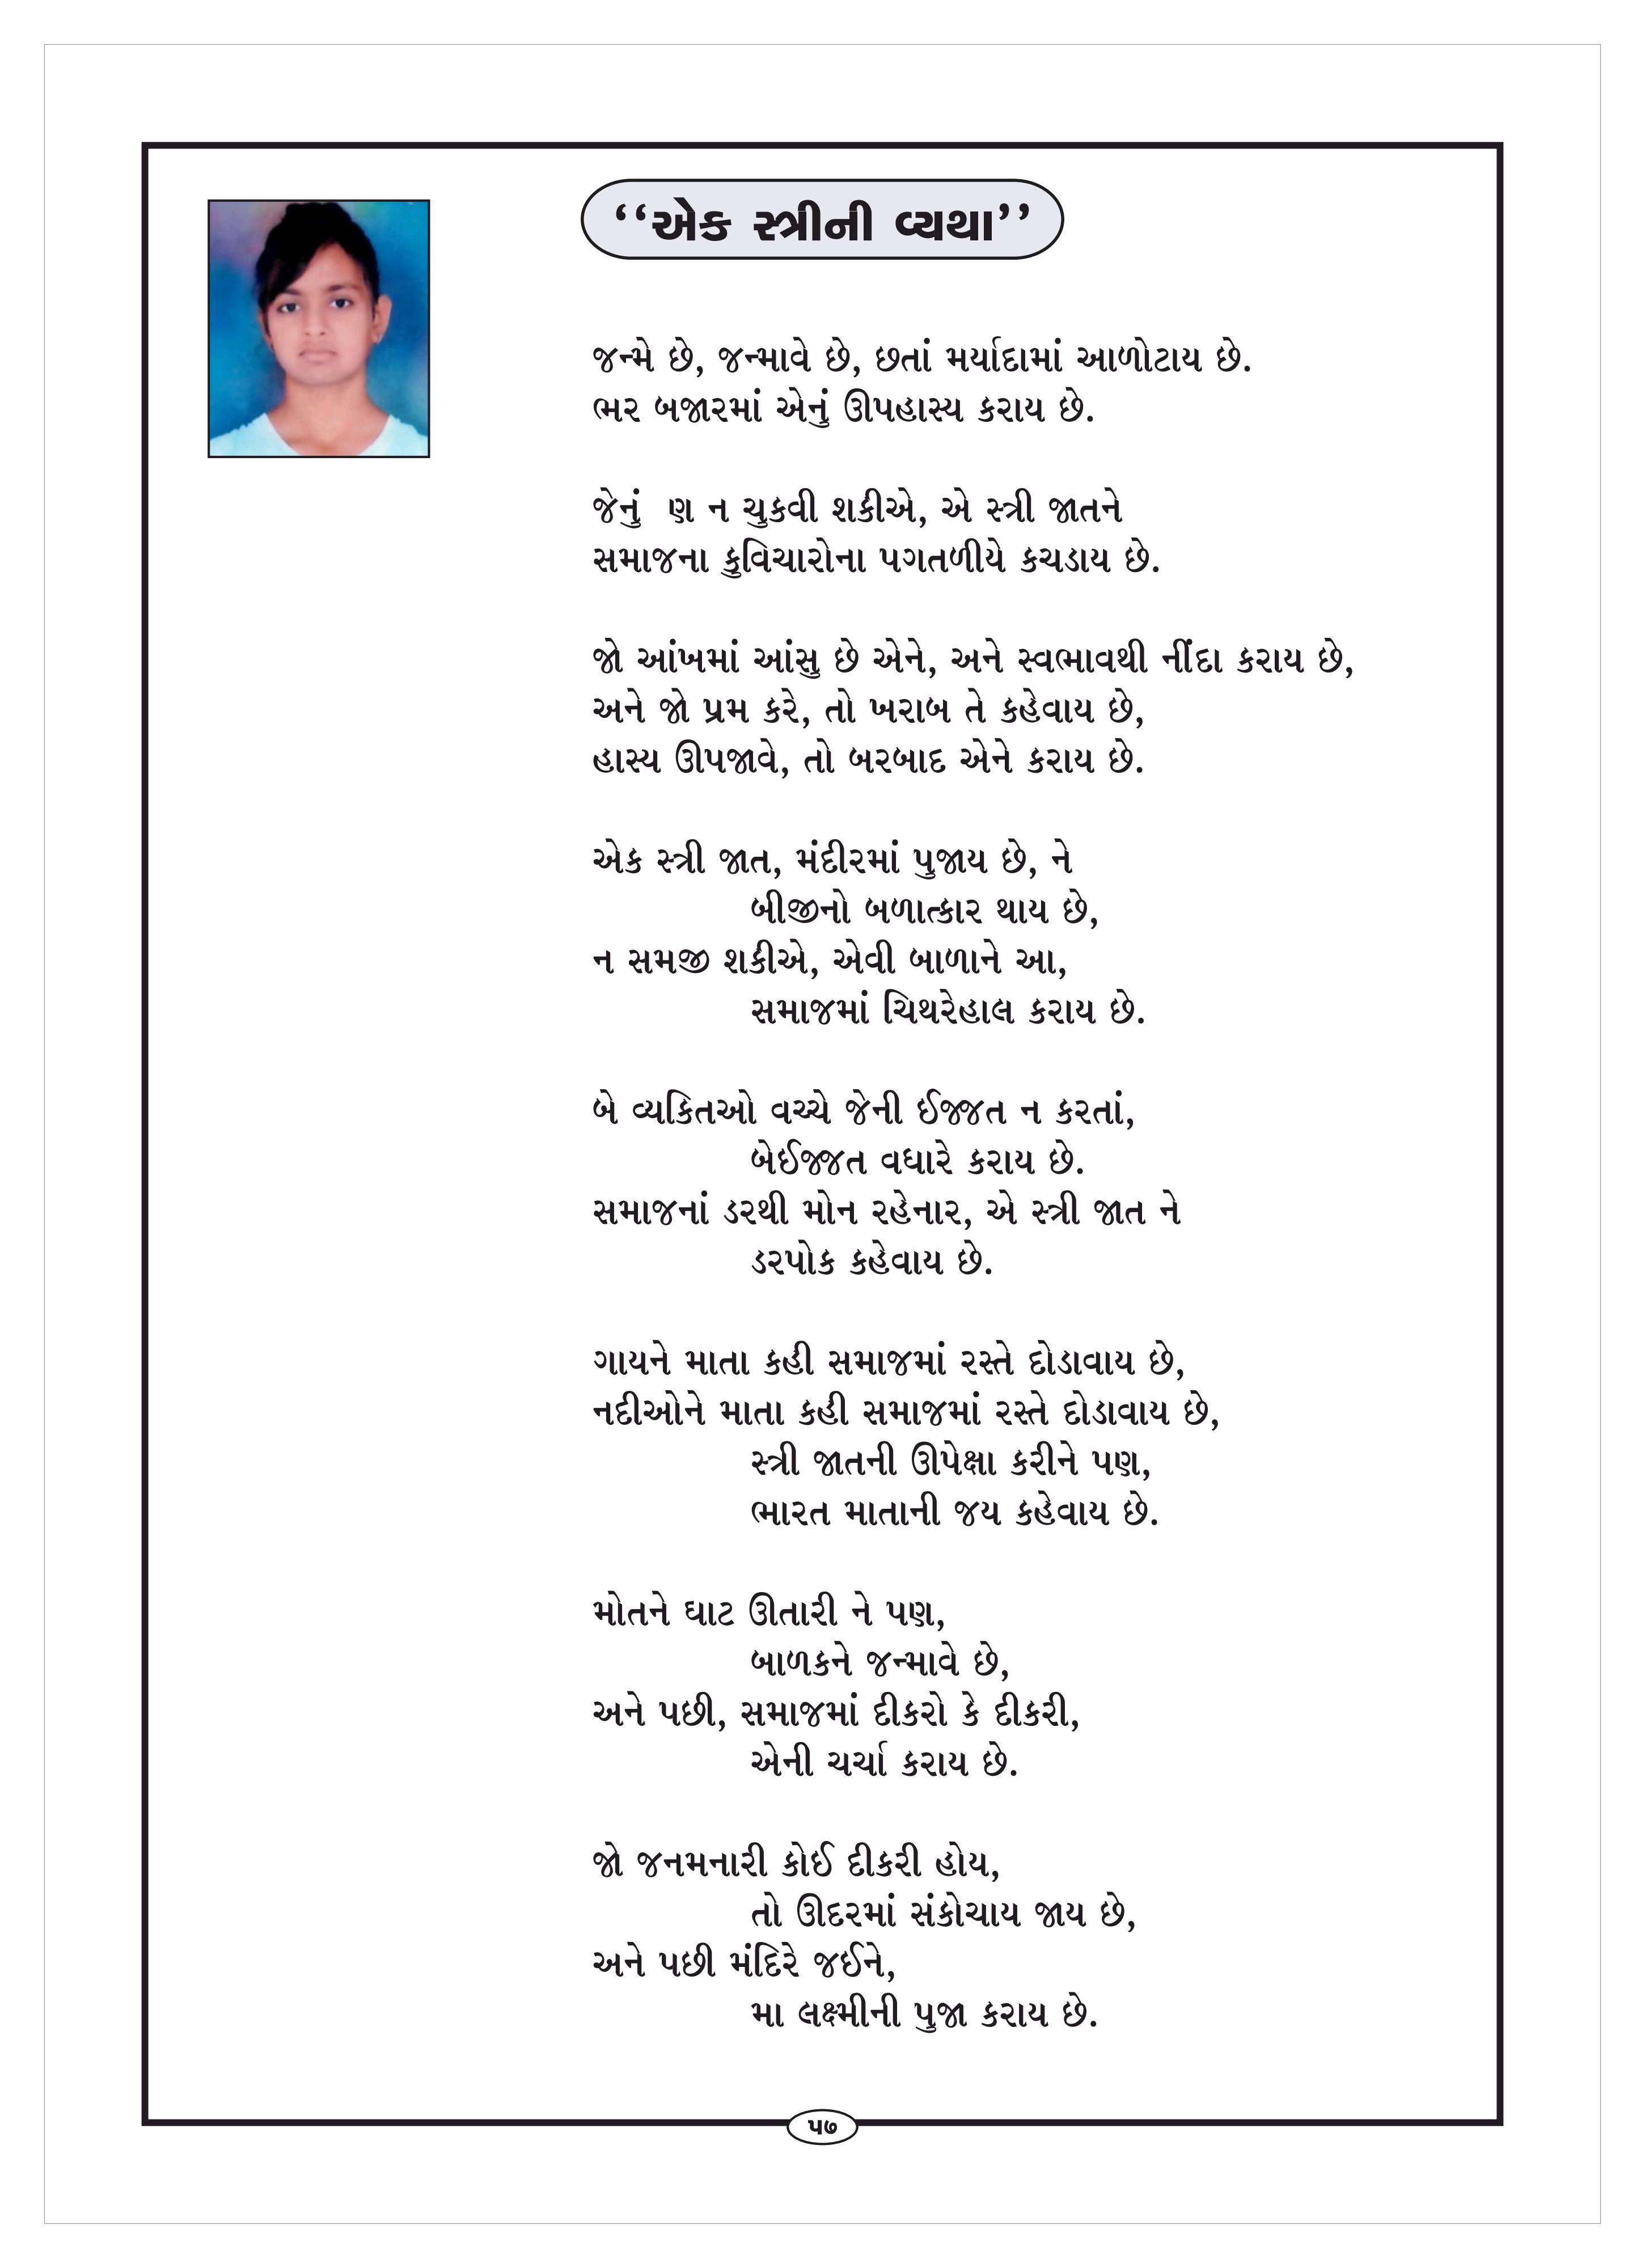 ‘‘એક સ્ત્રીની વ્યથા’’
જન્મે છે, જન્માવે છે, છતાં મર્યાદામાં આળોટાય છે.
ભર બજારમાં એનું ઊપહાસ્ય કરાય છે.
જેનું ણ ન ચુકવી શકીએ, એ સ્ત્રી જાતને
સમાજના કુવિચારોના પગતળીયે કચડાય છે.
જો આંખમાં આંસુ છે એને, અને સ્વભાવથી નીંદા કરાય છે,
અને જો પ્રમ કરે, તો ખરાબ તે કહેવાય છે,
હાસ્ય ઊપજાવે, તો બરબાદ એને કરાય છે.
એક સ્ત્રી જાત, મંદીરમાં પુજાય છે, ને
બીજીનો બળાત્કાર થાય છે,
ન સમજી શકીએ, એવી બાળાને આ,
સમાજમાં ચિથરેહાલ કરાય છે.
બે વ્યકિતઓ વચ્ચે જેની ઈજ્જત ન કરતાં,
બેઈજ્જત વધારે કરાય છે.
સમાજનાં ડરથી મોન રહેનાર, એ સ્ત્રી જાત ને
ડરપોક કહેવાય છે.
ગાયને માતા કહી સમાજમાં રસ્તે દોડાવાય છે,
નદીઓને માતા કહી સમાજમાં રસ્તે દોડાવાય છે,
સ્ત્રી જાતની ઊપેક્ષા કરીને પણ,
ભારત માતાની જય કહેવાય છે.
મોતને ઘાટ ઊતારી ને પણ,
બાળકને જન્માવે છે,
અને પછી, સમાજમાં દીકરો કે દીકરી,
એની ચર્ચા કરાય છે.
જો જનમનારી કોઈ દીકરી હોય,
તો ઊદરમાં સંકોચાય જાય છે,
અને પછી મંદિરે જઈને,
મા લક્ષ્મીની પુજા કરાય છે.
૫૭